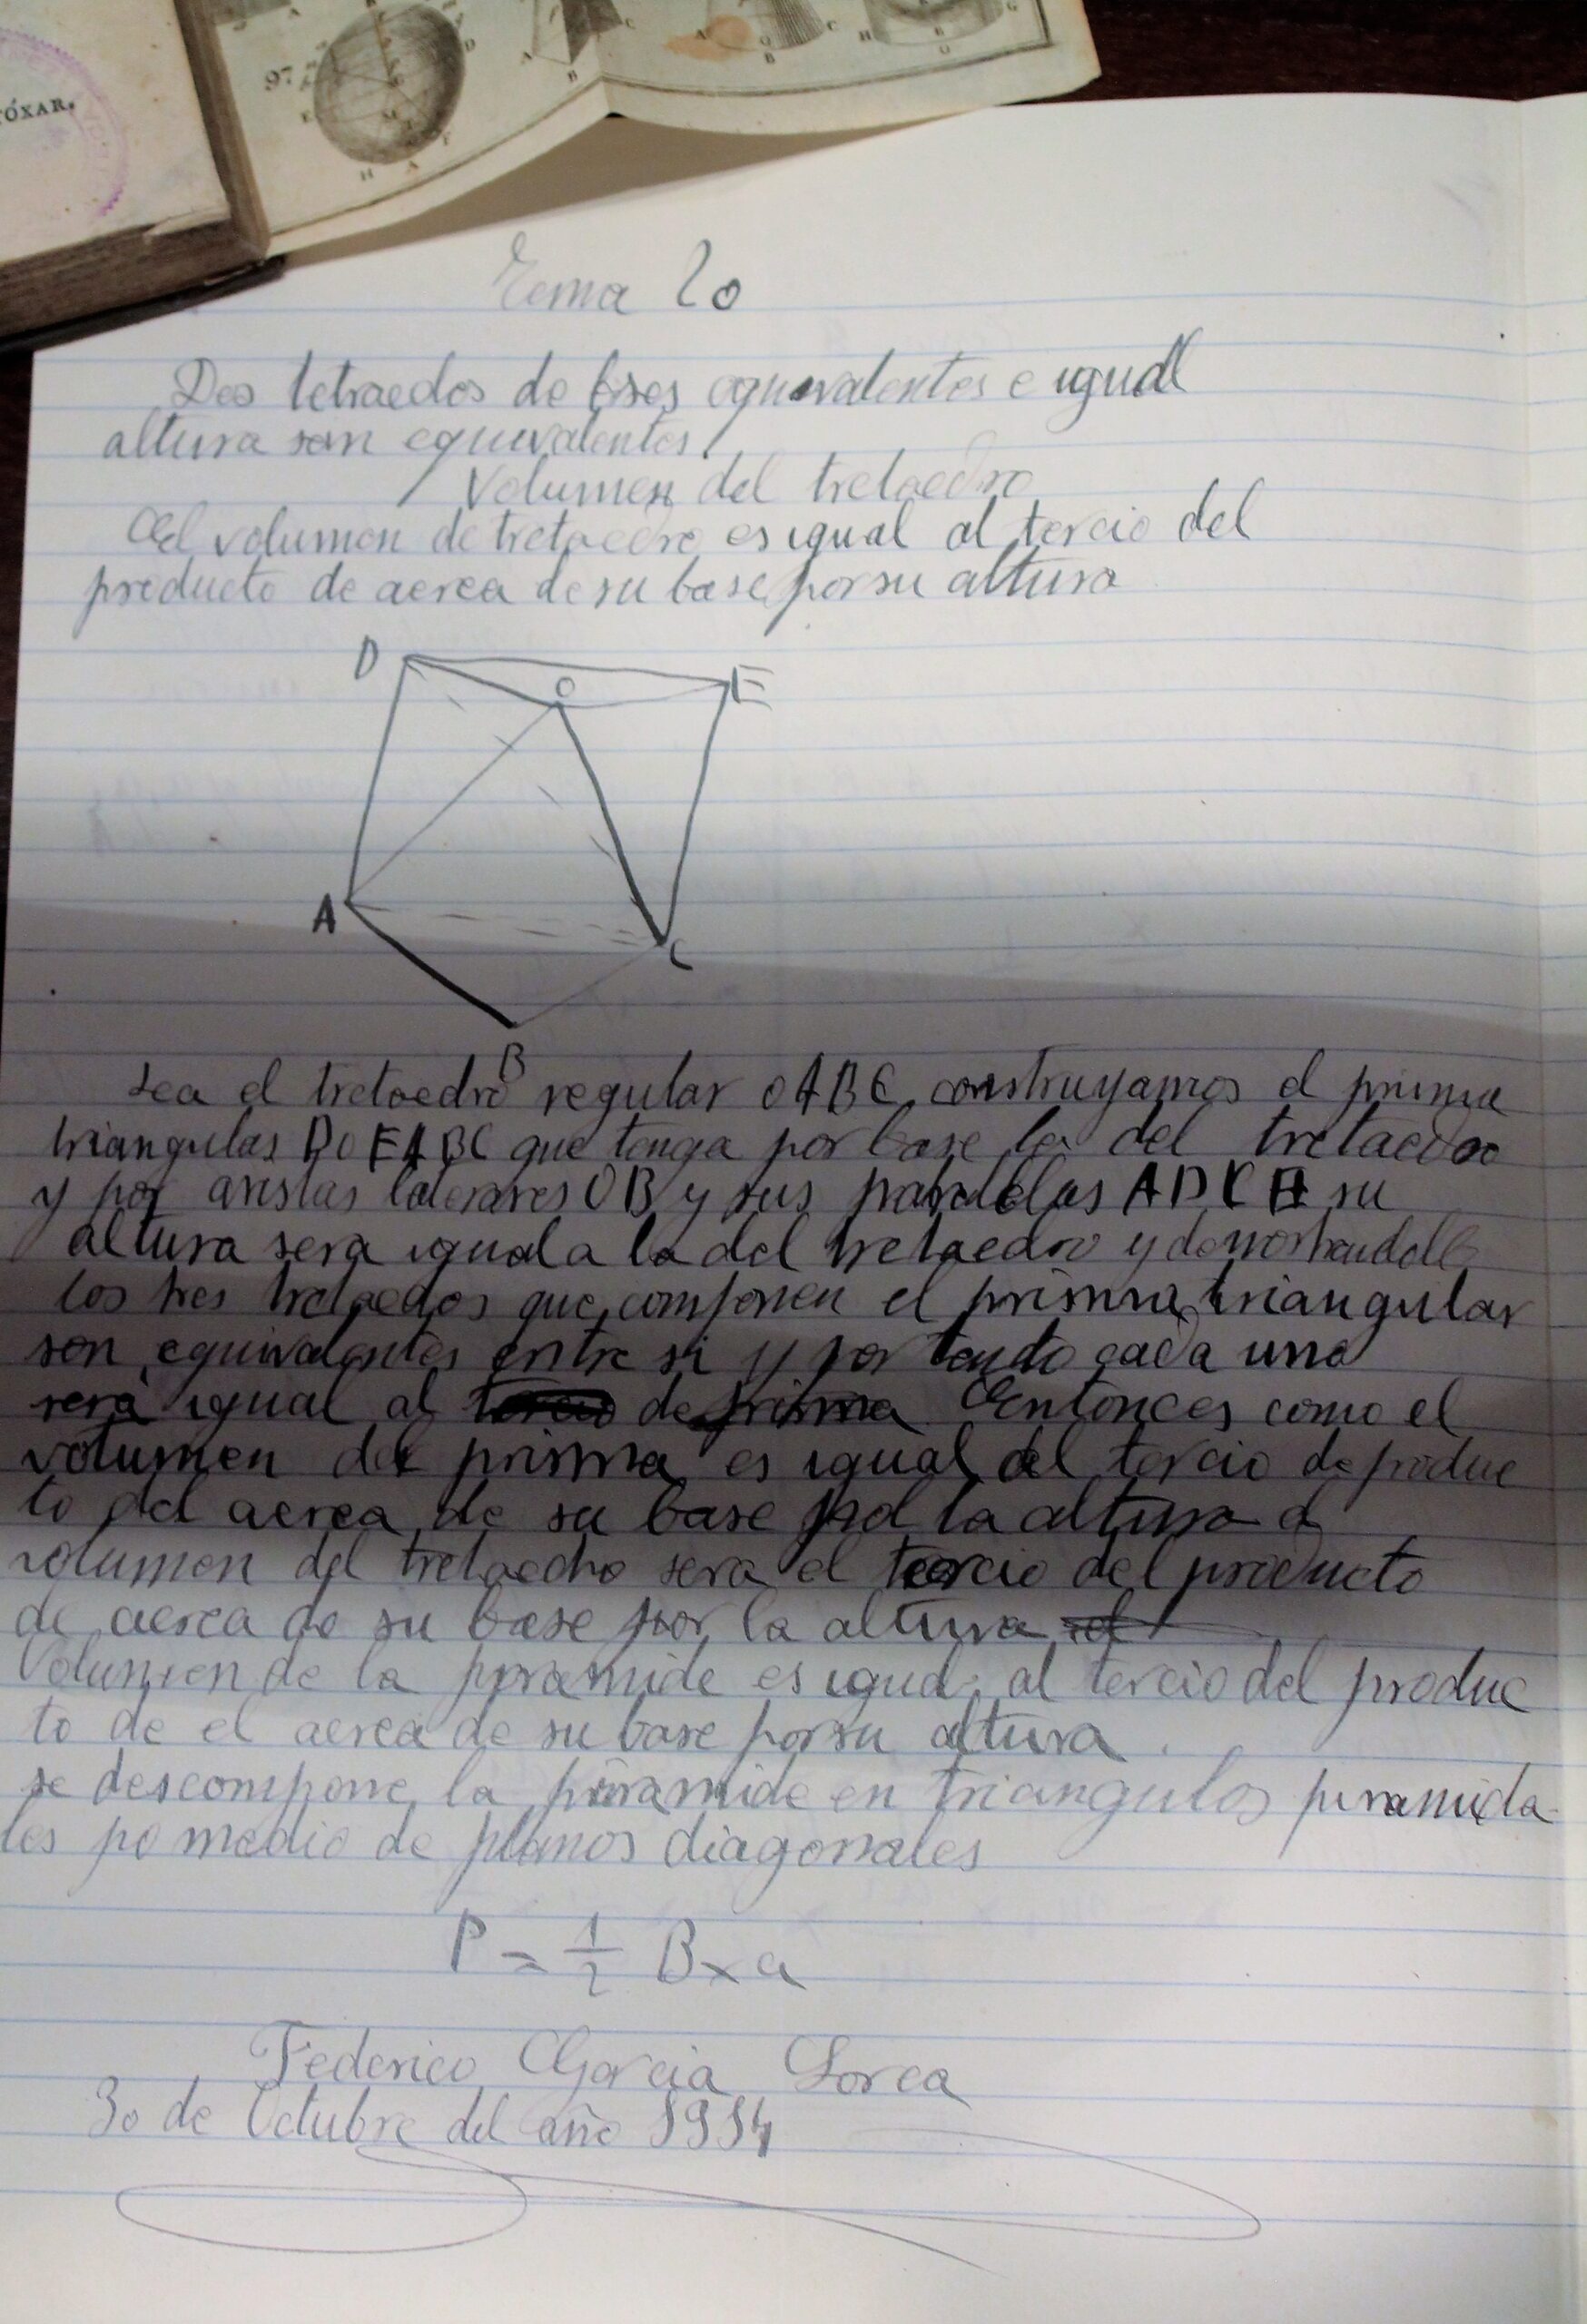 TÓXAR.
97
Tema 20
Dos tetraedos de bses equivalentes e igual
altura son equivalentes
Volumen del tretaedro
El volumen de tretaedro es igual al tercio del
producto de aerea de su base por su altura
D
O
E
A
C
B
sea el tretaedro regular OABC construyamos el prisma
triangulas DOEABC que tenga por base la del tretaedro
y por aristas laterares OB y sus paralelas AD CE su
altura sera igual a la del tretaedro y demostrando
los tres tretaedos que componen el prisma triangular
son equivalentes entre si y por tando cada uno
sera igual al tercio de prisma Entonces como el
volumen del prisma es igual al tercio de produc
to del aerea de su base por la altura el
volumen del tretaedro sera el tercio del producto
de aerea de su base por la altura el
Volumen de la piramide es igual al tercio del produc
to de el aerea de su base por su altura.
se descompone la piramide en triangulos piramida-
les po medio de planos diagonales
P = 1/2 B x a
Federico Garcia Lorca
30 de Octubre del año 1914